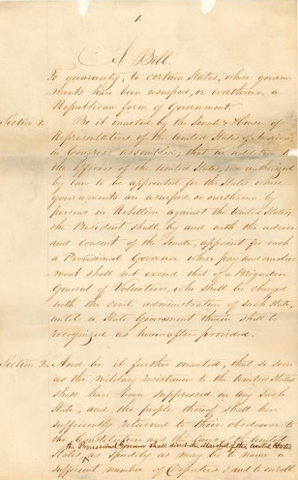 1.
A Bill
To guaranty, to certain States, whose govern
ments have been usurped, or overthrown, a
Republican form of Government.
Section 1. Be it enacted by the Senate & House of
Representatives of the United States of America
in Congress assembled, that in
the States
by law to be appointed for the States whose
governments are usurped or overthrown by
persons in Rebellion against the United States,
the President shall by and with the advice
and consent of the Senate, appoint for each
a Provisional Governor whose pay and emolu
ment shall not exceed that of a Brigadier
General of Volunteers, who shall be charged
with the civil administration of such State,
until a State Government therein shall be
recognized as hereinafter provided.
Section 2. And be it further enacted, that so soon
as the military resistance to the United States
shall have been suppressed in any such
State, and the people thereof shall have
sufficiently returned to their obedience to
the Constitution and the laws of the United
the Provisional Governor shall direct the Marshal of the United States
States, as speedily as may be to name a
sufficient number of Deputies, and to enroll